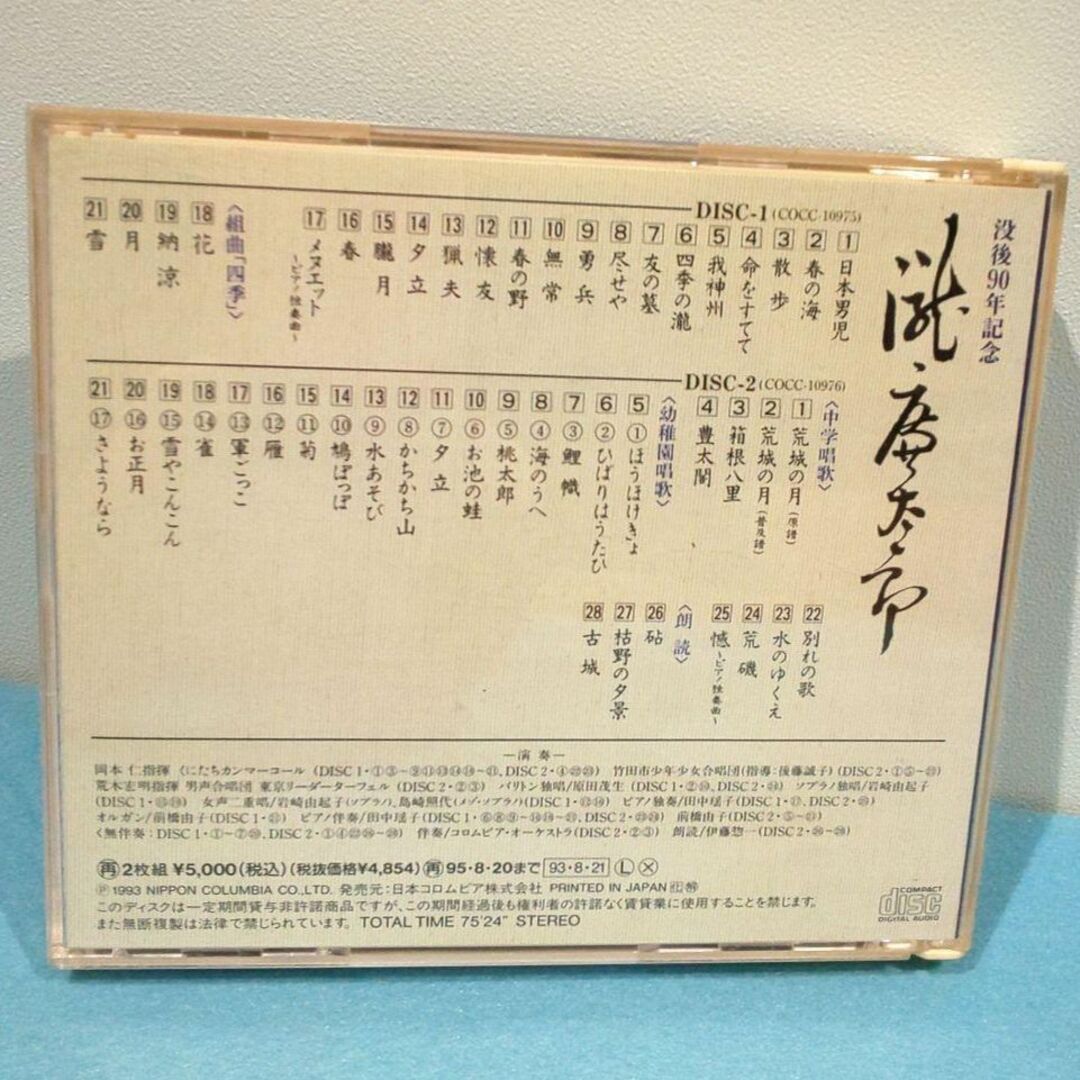 没後90年記念
瀧廉太郎
DISC-1 (COCC-10975)
1 日本男児
2 春の海
3 散歩
4 命をすてて
5 我神州
6 四季の瀧
7 友の墓
8 尽せや
9 勇兵
10 無常
11 春の野
12 懐友
13 猟夫
14 夕立
15 朧月
16 春
17 メヌエット 〜ピアノ独奏曲〜
〈組曲「四季」〉
18 花
19 納涼
20 月
21 雪
DISC-2 (COCC-10976)
〈中学唱歌〉
1 荒城の月(原譜)
2 荒城の月(普及譜)
3 箱根八里
4 豊太閤
〈幼稚園唱歌〉
5 ①ほうほけきょ
6 ②ひばりはうたひ
7 ③鯉幟
8 ④海のうへ
9 ⑤桃太郎
10 ⑥お池の蛙
11 ⑦夕立
12 ⑧かちかち山
13 ⑨水あそび
14 ⑩鳩ぽっぽ
15 ⑪菊
16 ⑫雁
17 ⑬軍ごっこ
18 ⑭雀
19 ⑮雪やこんこん
20 ⑯お正月
21 ⑰さようなら
22 別れの歌
23 水のゆくえ
24 荒磯
25 憾〜ピアノ独奏曲〜
〈朗読〉
26 砧
27 枯野の夕景
28 古城
―演奏―
岡本 仁指揮 くにたちカンマーコール
竹田市少年少女合唱団(指導:後藤誠子)
荒木宏明指揮 男声合唱団 東京リーダーターフェル (DISC 2・②③) バリトン独唱/原田茂生 ソプラノ独唱/岩崎由起子
女声二重唱/岩崎由起子(ソプラノ),島崎照代(メゾ・ソプラノ) ピアノ独奏/田中瑶子
オルガン/前橋由子 ピアノ伴奏/田中瑶子 前橋由子
伴奏/コロムビア・オーケストラ(DISC 2・②③) 朗読/伊藤惣一
再 2枚組 ¥5,000(税込) (税抜価格¥4,854) 再 95・8・20まで 93・8・21 Ⓛ Ⓧ
Ⓟ 1993 NIPPON COLUMBIA CO.,LTD. 発売元:日本コロムビア株式会社 PRINTED IN JAPAN
このディスクは一定期間貸与非許諾商品ですが、この期間経過後も権利者の許諾なく賃貸業に使用することを禁じます。
また無断複製は法律で禁じられています。 TOTAL TIME 75'24" STEREO
COMPACT
disc
DIGITAL AUDIO